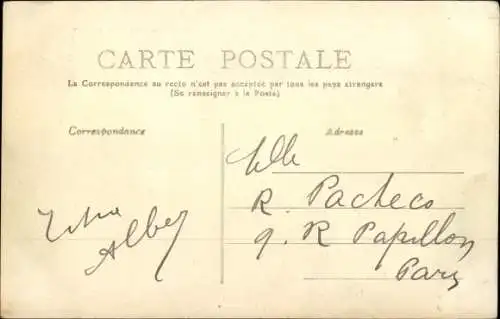 CARTE POSTALE
La Correspondance au recto n'est pas acceptée par tous les pays étrangers
(Se renseigner à la Poste)
Correspondance
Adresse
Mlle
R. Pacheco
9. R Papillon
Paris